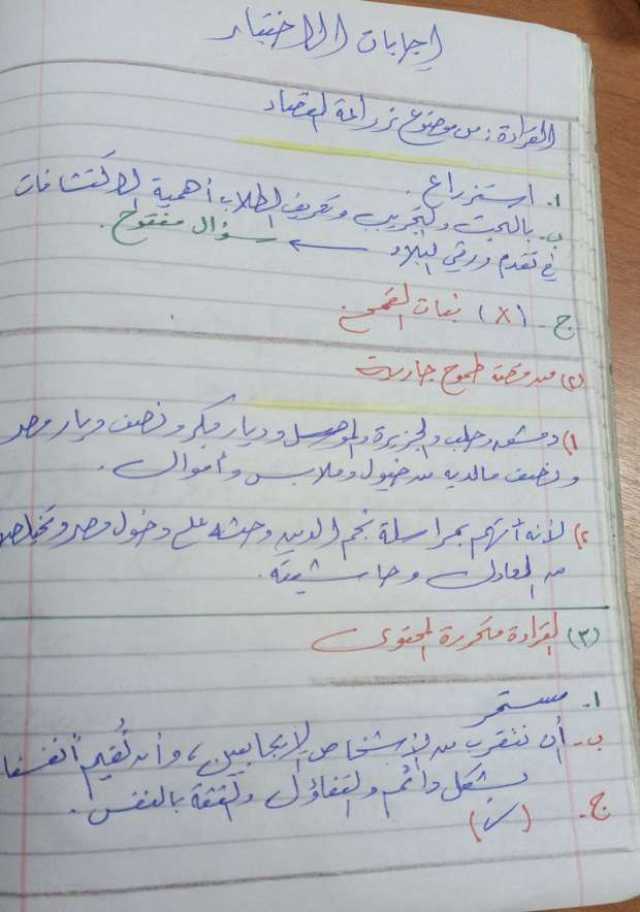 إجابات الاختبار
القراءة : من موضوع زراعة الفضاء
أ. استزراع .
ب. بالبحث والتجريب وتعريف الطلاب أهمية الاكتشافات
في تقدم ورقي البلاد ← سؤال مفتوح .
ج - (X) نبات القمح .
(٢) من قصة طموح جارية
١) دمشق وحلب والجزيرة والموصل وديار بكر ونصف ديار مصر
ونصف مالديه من خيول وملابس وأموال .
٢) لأنه اتهم بمراسلة نجم الدين وحثه على دخول مصر
من العادل وحاشيته .
(٣) القراءة متحررة المحتوى
أ. مستمر
ب- أن نتقرب من الأشخاص الإيجابيين ، وأن نُقيم أنفسنا
بشكل دائم والتفاؤل والثقة بالنفس .
ج. (✓)